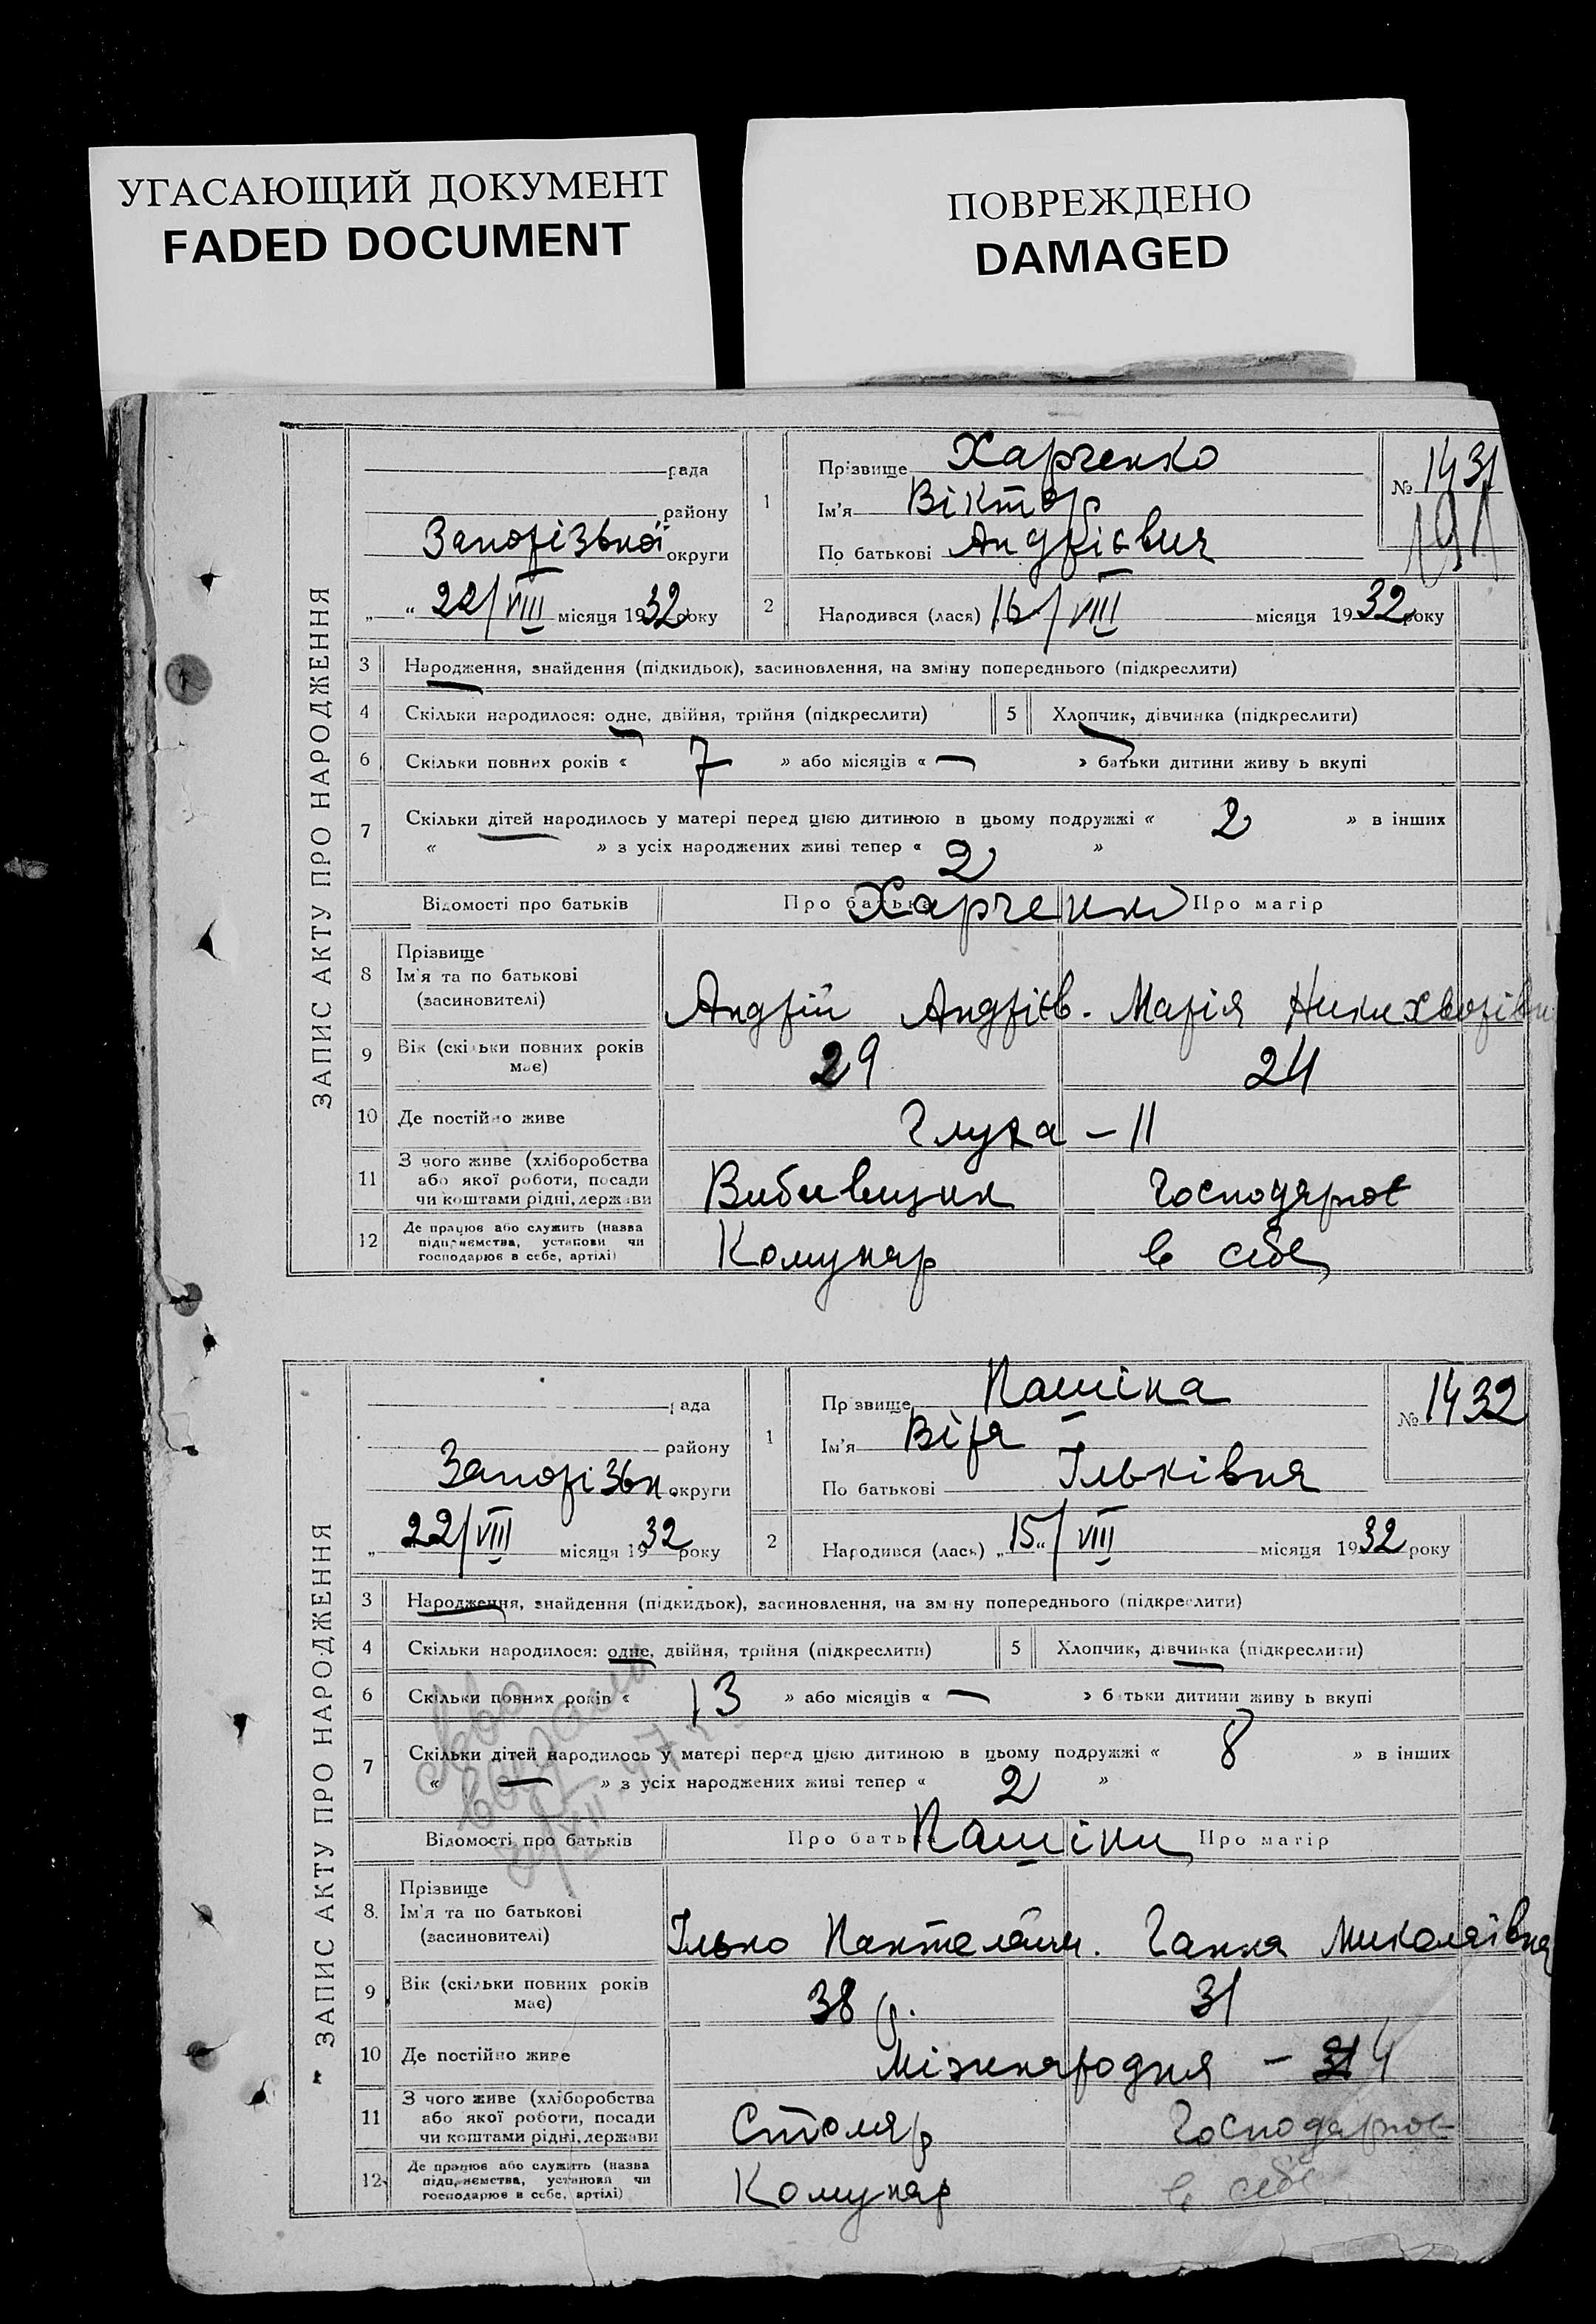 УГАСАЮЩИЙ ДОКУМЕНТ
FADED DOCUMENT
ПОВРЕЖДЕНО
DAMAGED
ЗАПИС АКТУ ПРО НАРОДЖЕННЯ
рада
району
Запорізької округи
„ “ 22/VIII місяця 1932 року
1 Прізвище Харченко
Ім'я Віктор
По батькові Андрієвич
№ 1431
191
2 Народився (лася) 16/VIII місяця 1932 року
3 Народження, знайдення (підкидьок), засиновлення, на зміну попереднього (підкреслити)
4 Скільки народилося: одне, двійня, трійня (підкреслити) 5 Хлопчик, дівчинка (підкреслити)
6 Скільки повних років « 7 » або місяців « — » батьки дитини живу ь вкупі
7 Скільки дітей народилось у матері перед цією дитиною в цьому подружжі « 2 » в інших
« » з усіх народжених живі тепер « 2 »
Відомості про батьків Про батька Харченки Про матір
8 Прізвище
Ім'я та по батькові
(засиновителі)
Андрій Андрієв. Марія
9 Вік (скільки повних років
має)
29 24
10 Де постійно живе Глуха – 11
11 З чого живе (хліборобства
або якої роботи, посади
чи коштами рідні, держави
Вибивщик Господарює
12 Де працює або служить (назва
підприємства, установи чи
господарює в себе, артілі)
Комунар в себе
ЗАПИС АКТУ ПРО НАРОДЖЕННЯ
рада
району
Запорізьк. округи
„ 22/VIII місяця 1932 року
1 Прізвище Пашіна
Ім'я Віра
По батькові Ільківна
№ 1432
2 Народився (лась) „15“/VIII місяця 1932 року
3 Народження, знайдення (підкидьок), засиновлення, на зміну попереднього (підкреслити)
4 Скільки народилося: одне, двійня, трійня (підкреслити) 5 Хлопчик, дівчинка (підкреслити)
6 Скільки повних років « 13 » або місяців « — » батьки дитини живу ь вкупі
7 Скільки дітей народилось у матері перед цією дитиною в цьому подружжі « 8 » в інших
« — » з усіх народжених живі тепер « 2 »
Відомості про батьків Про батька Пашіни Про матір
8. Прізвище
Ім'я та по батькові
(засиновителі)
Ілько Ганна Миколаївна
9 Вік (скільки повних років
має)
38 р. 31
10 Де постійно живе Міжнародня –
11 З чого живе (хліборобства
або якої роботи, посади
чи коштами рідні, держави
Столяр Господарює
12 Де працює або служить (назва
підприємства, установи чи
господарює в себе, артілі)
Комунар в себе